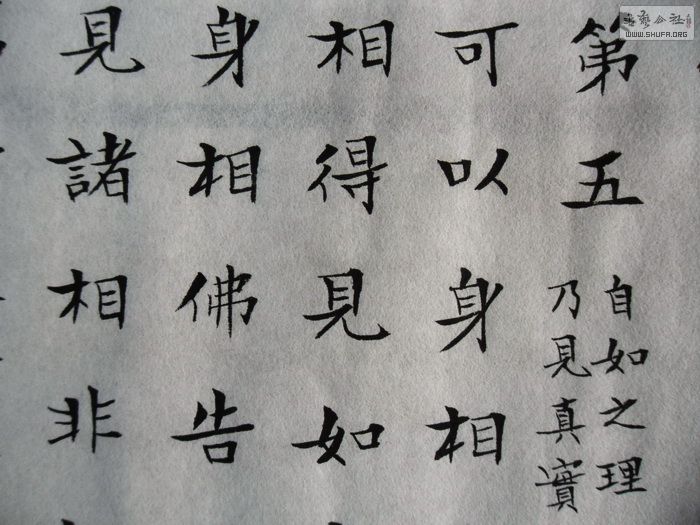 第五
自如之理
乃見真實
可以身相
相得見如
身相佛告
見諸相非
WWW.SHUFA.ORG